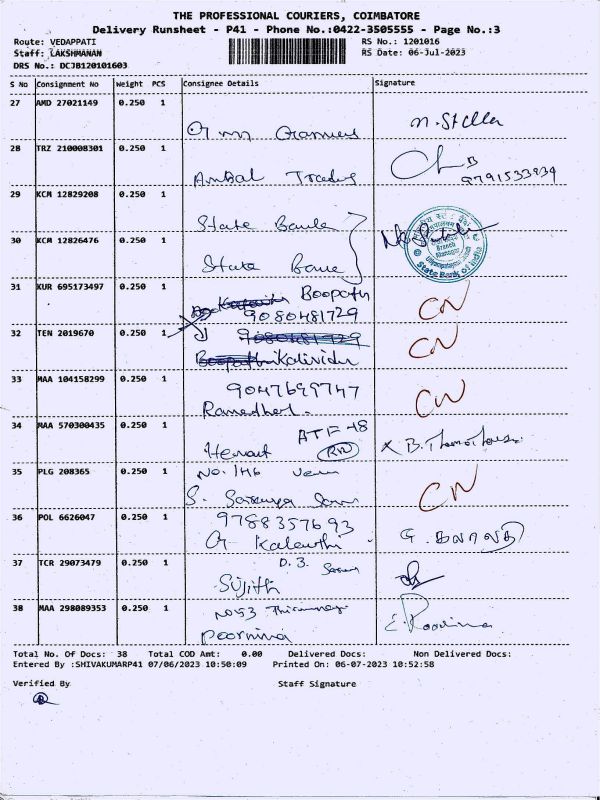 THE PROFESSIONAL COURIERS, COIMBATORE
Delivery Runsheet - P41 - Phone No.:0422-3505555 - Page No.:3
Route: VEDAPPATI
RS No.: 1201016
Staff: LAKSHMANAN
RS Date: 06-Jul-2023
DRS No.: DCJB120101603
S No Consignment No Weight PCS Consignee Details Signature
27 AMD 27021149 0.250 1
n. Stella
28 TRZ 210008301 0.250 1
B
Ambal Trading
9791533939
29 KCM 12829208 0.250 1
State Bank
30 KCM 12826476 0.250 1
State Bank
Branch Manager
State Bank of India
31 KUR 695173497 0.250 1 Boopath
9080481729
CN
32 TEN 2019670 0.250 1 9080481729
Kalividu
CN
33 MAA 104158299 0.250 1
9047699747
CN
34 MAA 570300435 0.250 1 ATF 48
Hemant RN
x B.
35 PLG 208365 0.250 1 No. 146
S.
CN
36 POL 6626047 0.250 1 9788357693
G
G.
37 TCR 29073479 0.250 1 D. 3.
Sujith
38 MAA 298089353 0.250 1 No 53
Poornima
E. Poornima
Total No. Of Docs: 38 Total COD Amt: 0.00 Delivered Docs: Non Delivered Docs:
Entered By :SHIVAKUMARP41 07/06/2023 10:50:09 Printed On: 06-07-2023 10:52:58
Verified By Staff Signature